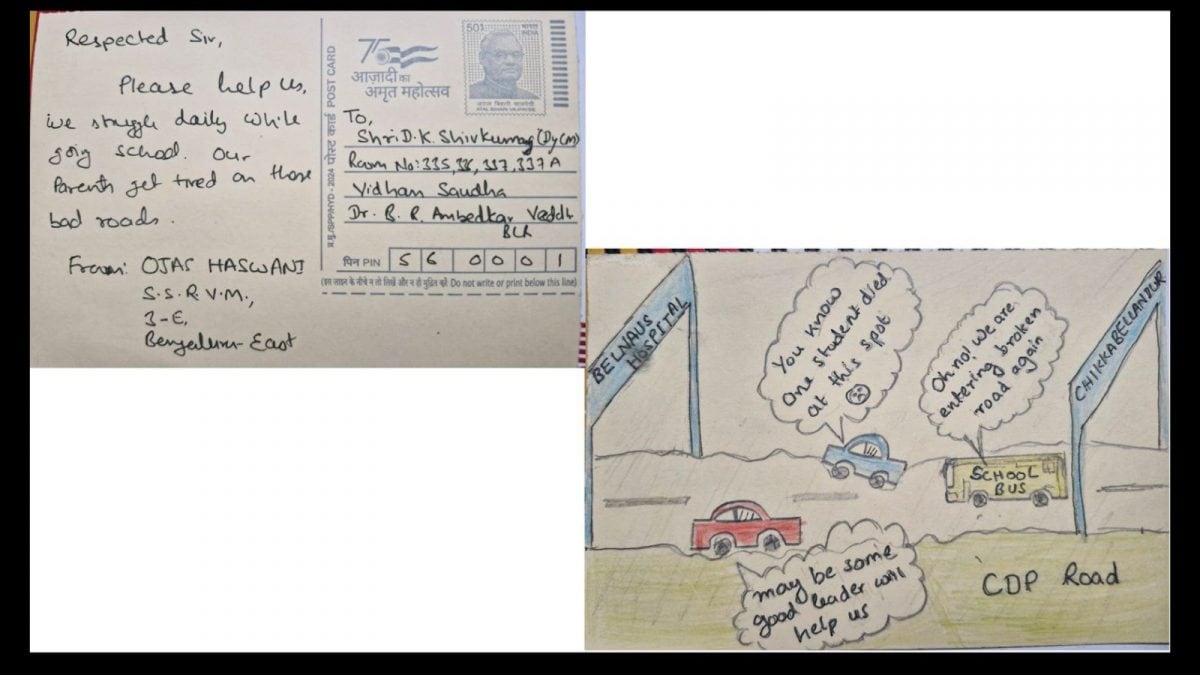 Respected Sir,
Please help us,
we struggle daily while
going school. Our
Parents get tired on those
bad roads.
From: OJAS HASWANI
S.S.R.V.M.,
3-E,
Bengaluru-East
प्र.मु./SPP/HYD - 2024 पोस्ट कार्ड POST CARD
75
आज़ादी का
अमृत महोत्सव
501
भारत
INDIA
अटल बिहारी वाजपेयी
ATAL BIHARI VAJPAYEE
To,
Shri. D.K. Shivkumar (DyCM)
Room No: 335, 36, 337, 337A
Vidhan Saudha
Dr. B. R. Ambedkar
BLR
पिन PIN 5 6 0 0 0 1
(इस लाइन के नीचे न तो लिखें और न ही मुद्रित करें Do not write or print below this line)
BELNAUS
HOSPITAL
You know
One student died
at this spot
Oh no! we are
entering broken
road again
CHIKKABELLANDUR
SCHOOL
BUS
may be some
good leader will
help us
CDP Road